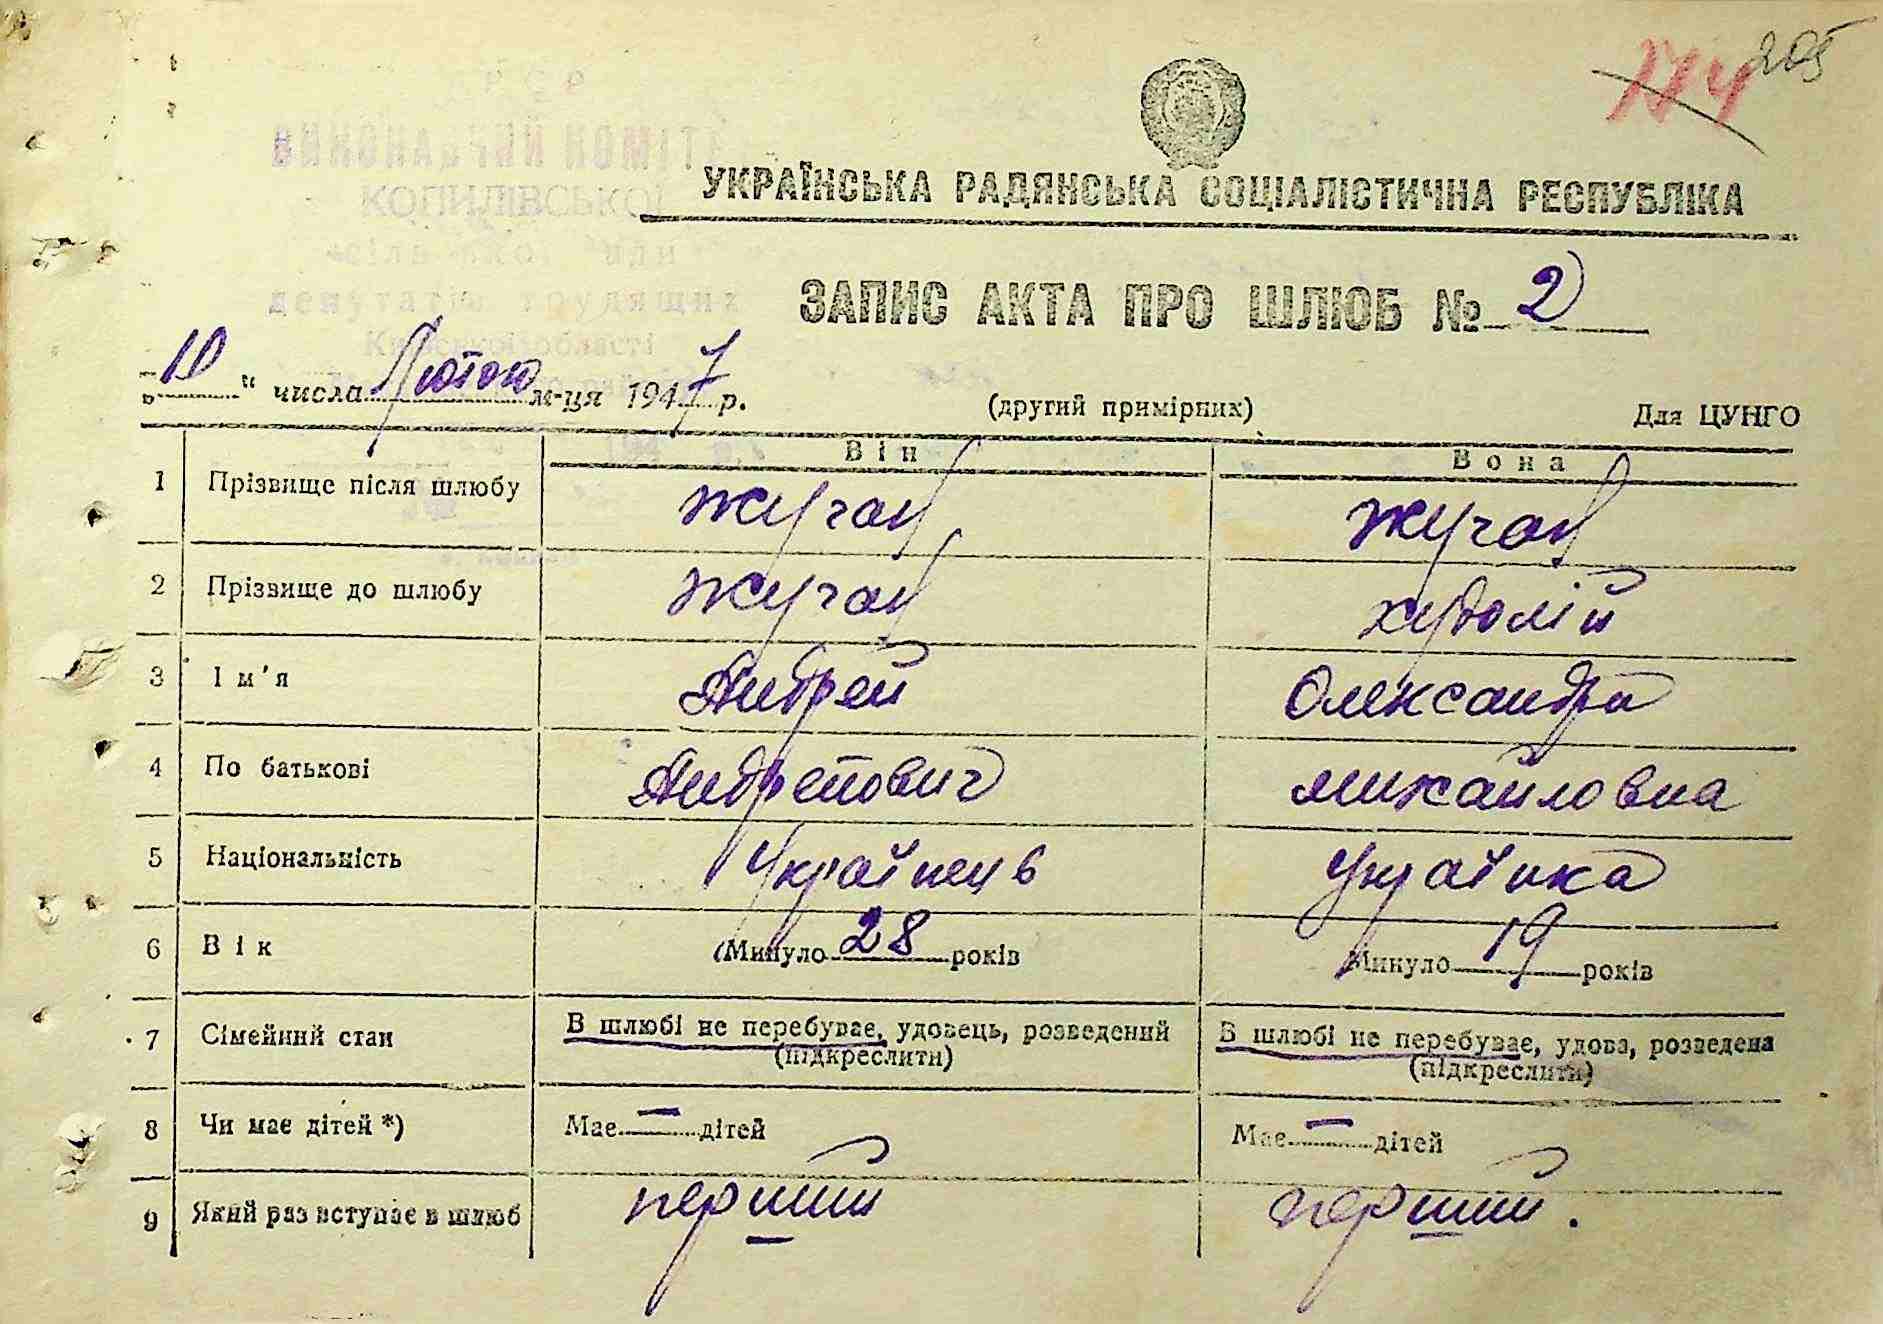 174 205
УКРАЇНСЬКА РАДЯНСЬКА СОЦІАЛІСТИЧНА РЕСПУБЛІКА
ЗАПИС АКТА ПРО ШЛЮБ № 2
КОПИЛІВСЬКОЇ
депутатів трудящих
Київської області
„10“ числа Лютого м-ця 1947 р.
(другий примірник)
Для ЦУНГО
Він Вона
1 Прізвище після шлюбу Жучай Жучай
2 Прізвище до шлюбу Жучай Худолій
3 Ім’я Андрей Олександра
4 По батькові Андрейович михайловна
5 Національність Українець Українка
6 Вік Минуло 28 років Минуло 19 років
7 Сімейний стан В шлюбі не перебуває, удовець, розведений В шлюбі не перебуває, удова, розведена
(підкреслити) (підкреслити)
8 Чи має дітей *) Має — дітей Має — дітей
9 Який раз вступає в шлюб перший перший.